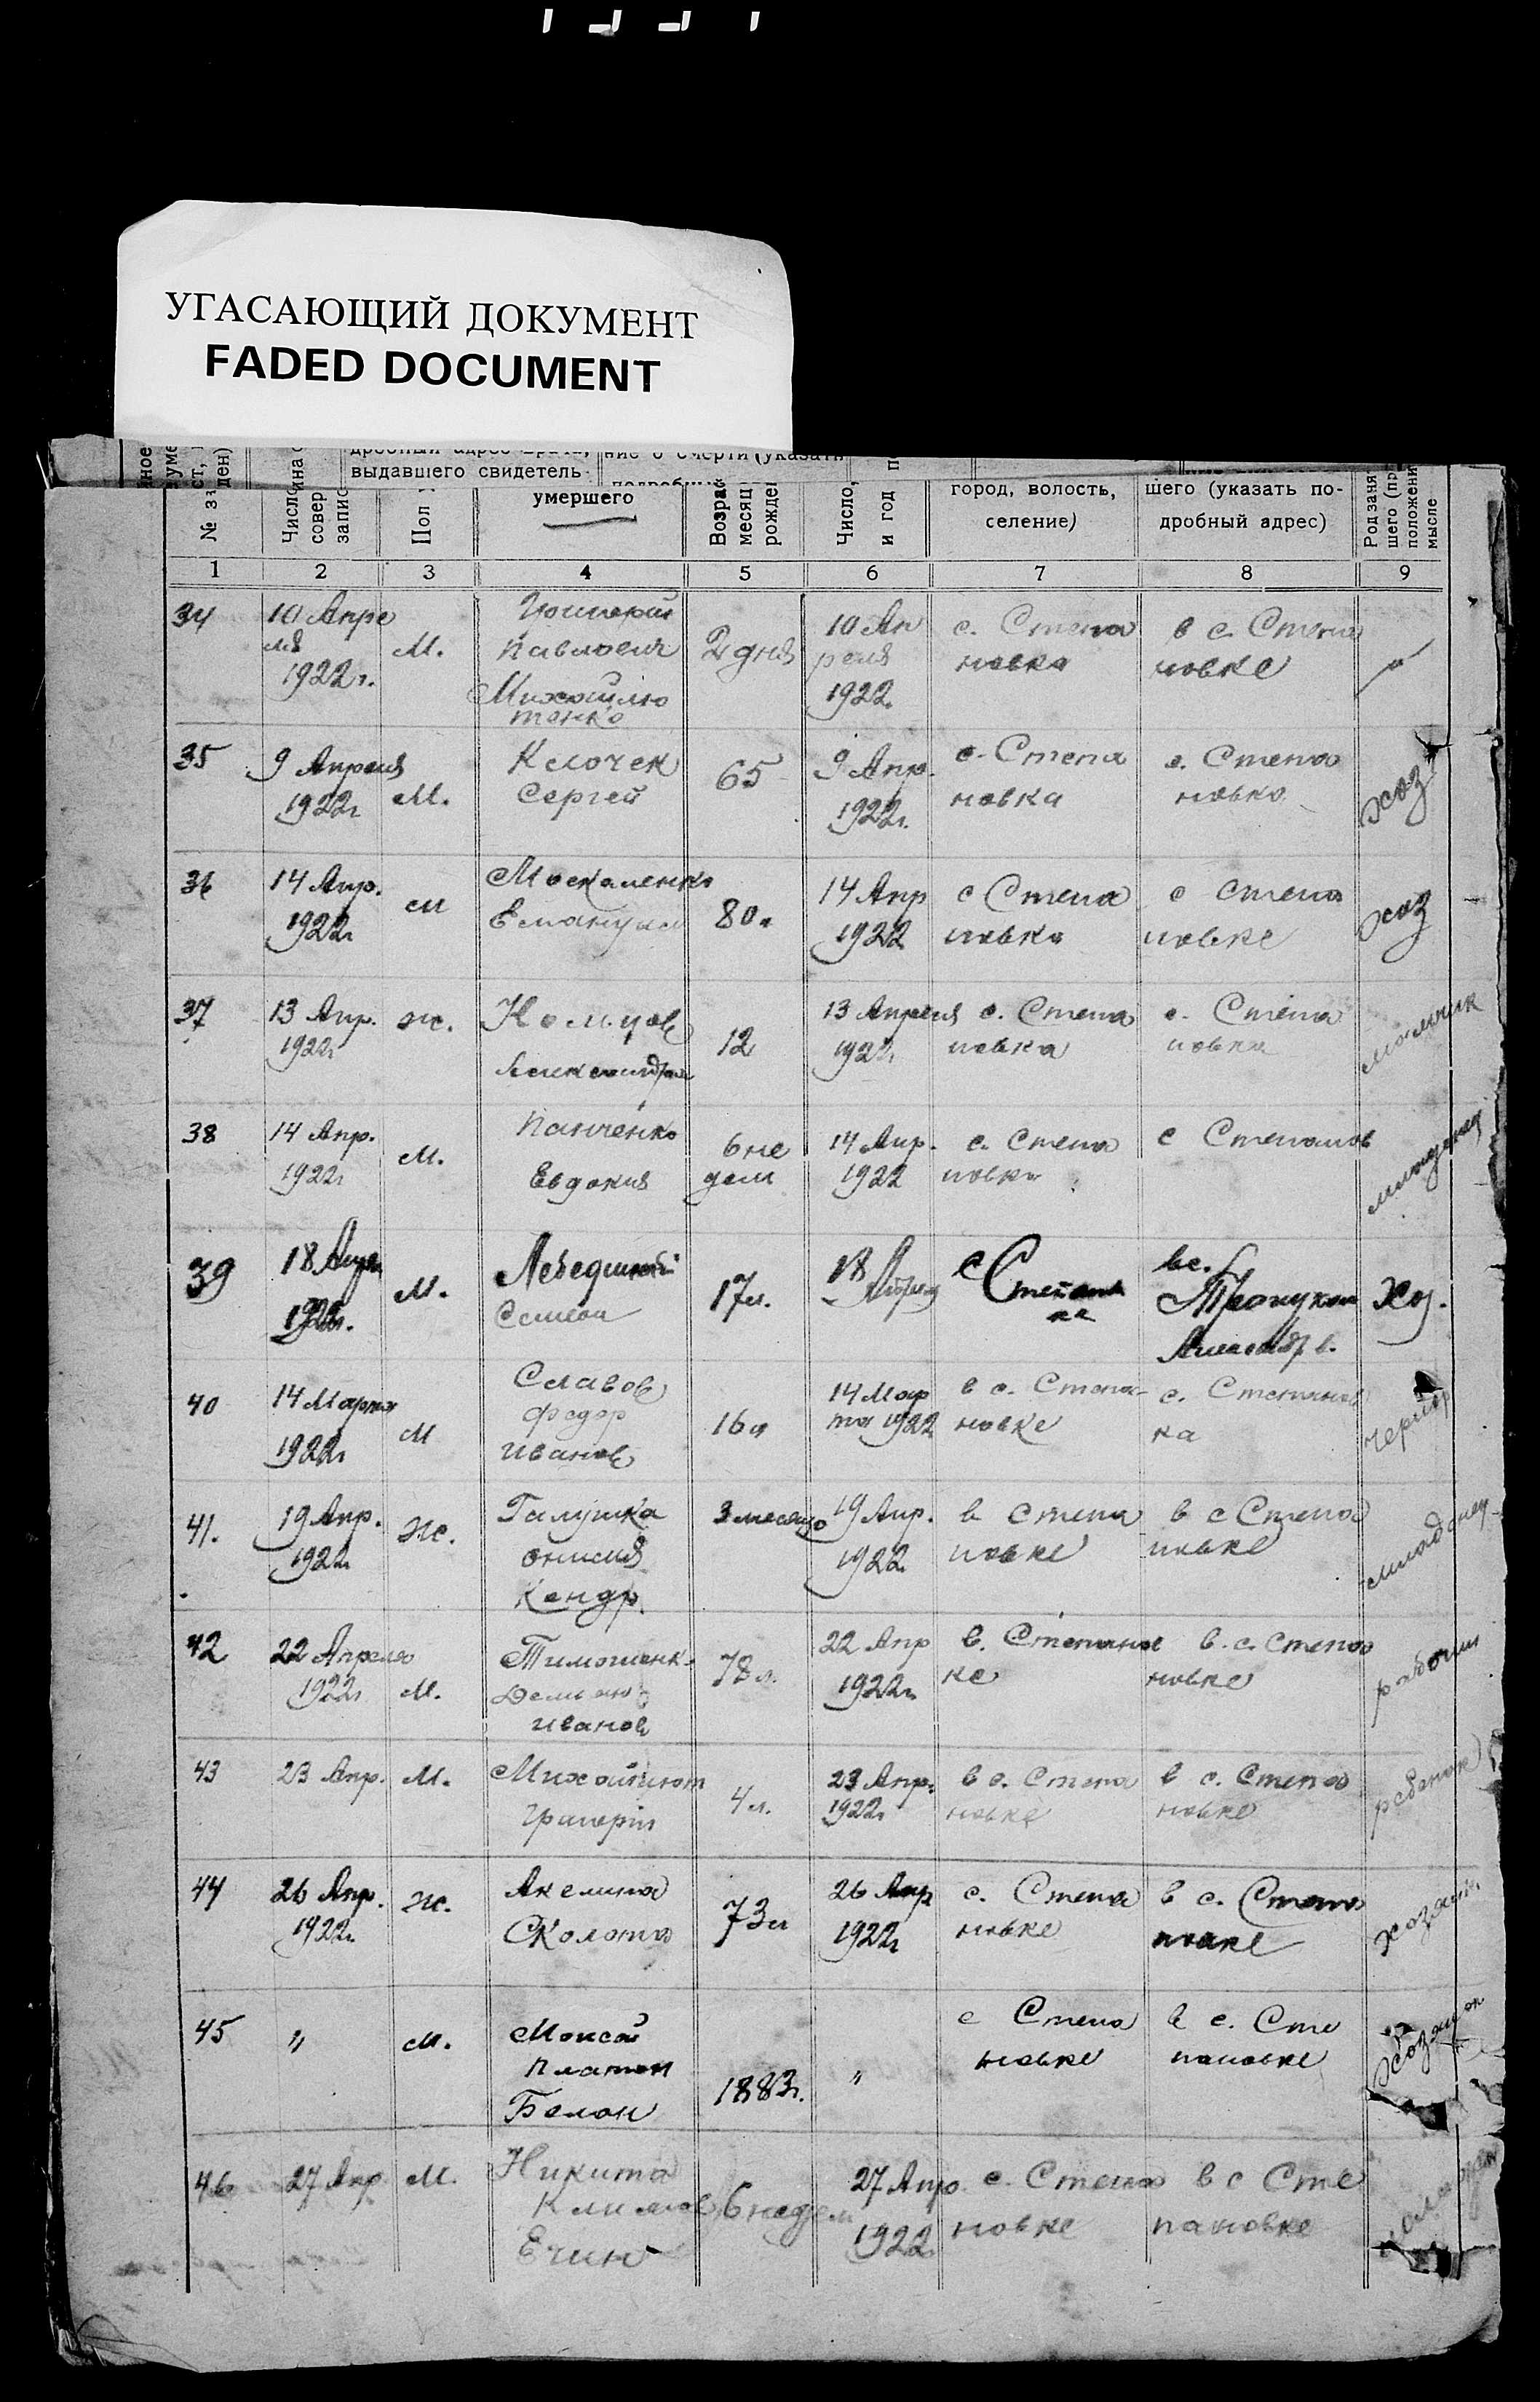 УГАСАЮЩИЙ ДОКУМЕНТ
FADED DOCUMENT
выдавшего свидетель-
ние о смерти (указать
№
Число
совер
запис
Пол
умершего
Возрас
месяц
рожде
Число,
и год
город, волость,
селение)
шего (указать по-
дробный адрес)
Род заня
шего (пр
положени
мысле
1 2 3 4 5 6 7 8 9
34 10 Апре
ля
1922 г. М.
Павлович
Михайлю
тенко
2 дня
10 Ап
реля
1922
с. Степа
новка
в с. Степа
новке
35 9 Апреля
1922 г М.
Клочек
Сергей
65
9 Апр.
1922 г.
с. Степа
новка
с. Степа
новка
хоз
36 14 Апр.
1922 г
м
Москаленко
Емануил
80 л
14 Апр
1922
с Степа
новка
с Степа
новке
хоз
37 13 Апр.
1922 г
ж.
Александра
12
13 Апреля
1922 г
с. Степа
новка
с. Степа
новка
38 14 Апр.
1922 г
М.
Панченко
Евдокия
6 не
дел
14 Апр.
1922
с. Степа
новка
с Степанов
39 18 Апре
1922 г.
М.
Семен
17 л.
18
с
вс.
Хоз.
40 14 Марта
1922 г
М
Славов
Федор
Иванов
16 л
14 Мар
та 1922
в с. Степа-
новке
с. Степанов
ка
41. 19 Апр.
1922 г
Ж.
Галушка
Кендр.
3 месяца
19 Апр.
1922
в Степа
новке
в с Степа
новке
младенец
42 22 Апреля
1922 г М.
Тимошенк.
Иванов
78 л.
22 Апр
1922 г.
в. Степанов
ке
в. с. Степа
новке
рабочий
43 23 Апр. М.
Михайлют
4 л.
23 Апр.
1922 г
в с. Степа
новке
в с. Степа
новке
ребенок
44 26 Апр.
1922 г.
ж.
Акелина
Сколота
73 л
26 Апр
1922 г
с. Степа
новке
в с. Степа
новке
45 " М.
Моисей
Платон
Белан
1883 г.
"
с Степа
новке
в с. Сте
пановке
46 27 Апр М.
Никита
Климов
6 недел
27 Апр.
1922
с. Степа
новке
в с Сте
пановке